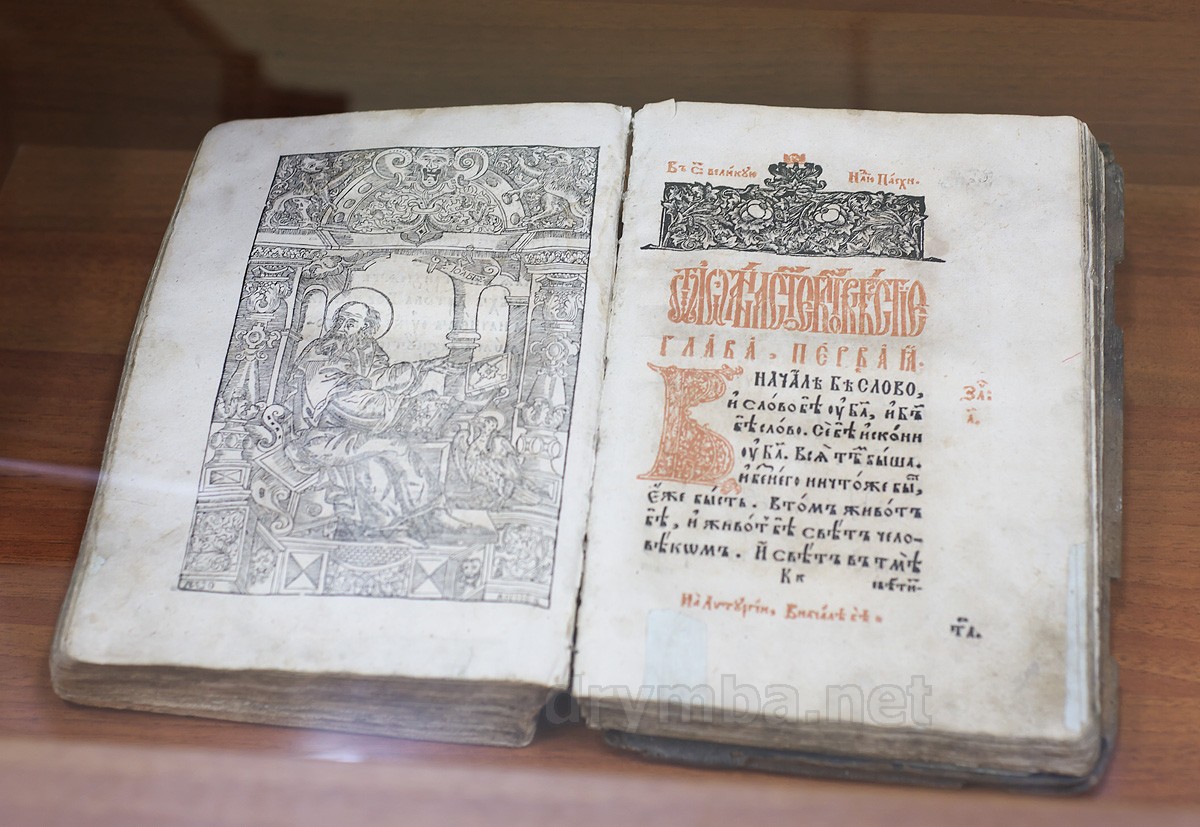 Въ С҃ велйкꙋю Нл҃ю Па́схи.
ГЛАВА̀, ПЕ́РВАꙖ.
В НАЧА́ЛѢ БѢ̀ СЛО́ВО,
и҆ сло́во бѣ̀ ᲂу҆ бг҃а, и҆ бг҃ъ
бѣ̀ сло́во. Се́й бѣ̀ и҆скони
ᲂу҆ бг҃а. Всѧ̑ тѣ́мъ бы́ша.
и҆ беꙁ̾ не́гѡ ничто́же бы́сть,
є҆́же бы́сть. Вто́мъ живо́тъ
бѣ̀, и҆ живо́тъ бѣ̀ свѣ́тъ чело-
вѣ́кѡмъ. И҆ свѣ́тъ въ тмѣ̀
Кк свѣ́ти-
За҃:
а҃.
На Литꙋргіи, Внача́лѣ бѣ̀
drymba.net